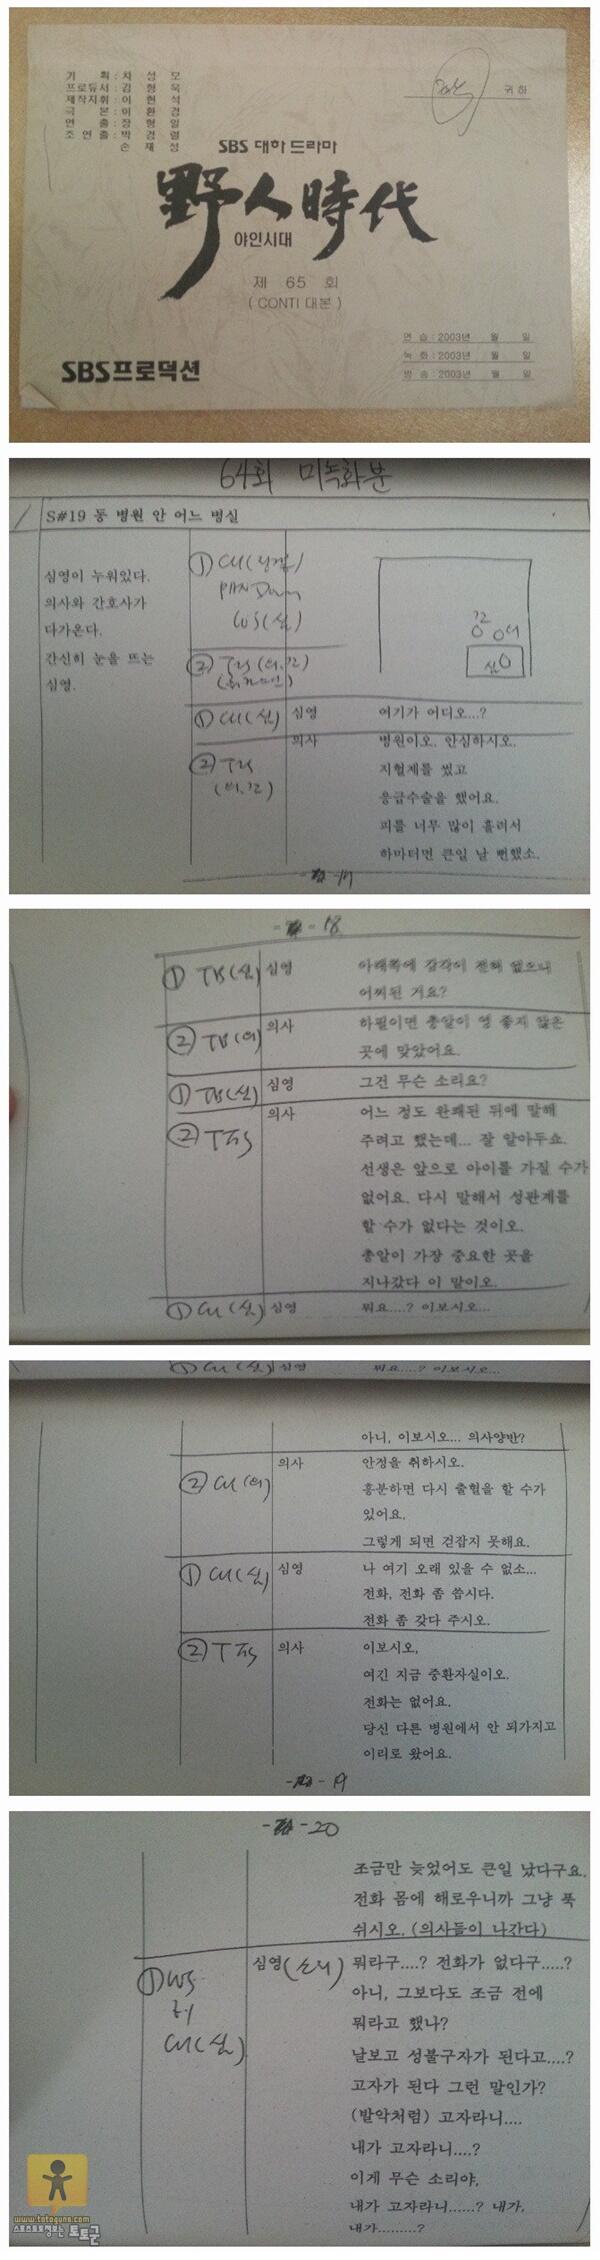 기 획 : 차 성 모
프로듀서 : 김 형 욱
제작지휘 : 이 현 석
극 본 : 이 환 경
연 출 : 장 형 일
조 연 출 : 박 경 렬
손 재 성
귀하
SBS 대하드라마
野人時代
야인시대
제 65 회
( CONTI 대본 )
연 습 : 2003년 월 일
녹 화 : 2003년 월 일
방 송 : 2003년 월 일
SBS프로덕션
64회 미녹화분
S#19 동 병원 안 어느 병실
심영이 누워있다.
의사와 간호사가
다가온다.
간신히 눈을 뜨는
심영.
① CU(링겔)
PAN Down
WS(심)
② T2S (의.간)
① CU(심) 심영 여기가 어디오...?
② T2S (의.간) 의사 병원이오. 안심하시오.
지혈제를 썼고
응급수술을 했어요.
피를 너무 많이 흘려서
하마터면 큰일 날 뻔했소.
- 17
- 18
① TBS(심) 심영 아래쪽에 감각이 전혀 없으니
어찌된 거요?
② TB(의) 의사 하필이면 총알이 영 좋지 않은
곳에 맞았어요.
① TBS(심) 심영 그건 무슨 소리요?
② TFS 의사 어느 정도 완쾌된 뒤에 말해
주려고 했는데... 잘 알아두쇼.
선생은 앞으로 아이를 가질 수가
없어요. 다시 말해서 성관계를
할 수가 없다는 것이오.
총알이 가장 중요한 곳을
지나갔다 이 말이오.
① CU(심) 심영 뭐요....? 이보시오...
① CU(심) 심영 뭐요....? 이보시오...
아니, 이보시오... 의사양반?
② CU(의) 의사 안정을 취하시오.
흥분하면 다시 출혈을 할 수가
있어요.
그렇게 되면 걷잡지 못해요.
① CU(심) 심영 나 여기 오래 있을 수 없소...
전화, 전화 좀 씁시다.
전화 좀 갖다 주시오.
② TFS 의사 이보시오,
여긴 지금 중환자실이오.
전화는 없어요.
당신 다른 병원에서 안 되가지고
이리로 왔어요.
- 19
- 20
조금만 늦었어도 큰일 났다구요.
전화 몸에 해로우니까 그냥 푹
쉬시오. (의사들이 나간다)
① WS
CU(심)
심영(소리) 뭐라구....? 전화가 없다구.....?
아니, 그보다도 조금 전에
뭐라고 했나?
날보고 성불구자가 된다고....?
고자가 된다 그런 말인가?
(발악처럼) 고자라니....
내가 고자라니....?
이게 무슨 소리야,
내가 고자라니......? 내가,
내가.........?
www.totoguns.com
스포츠토토정보는 토토군